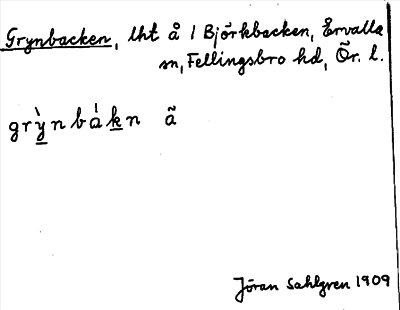 Grynbacken, lht å 1 Björkbacken, Ervalla
sn, Fellingsbro hd, Ör. l.
grỳnbákn ã
Jöran Sahlgren 1909